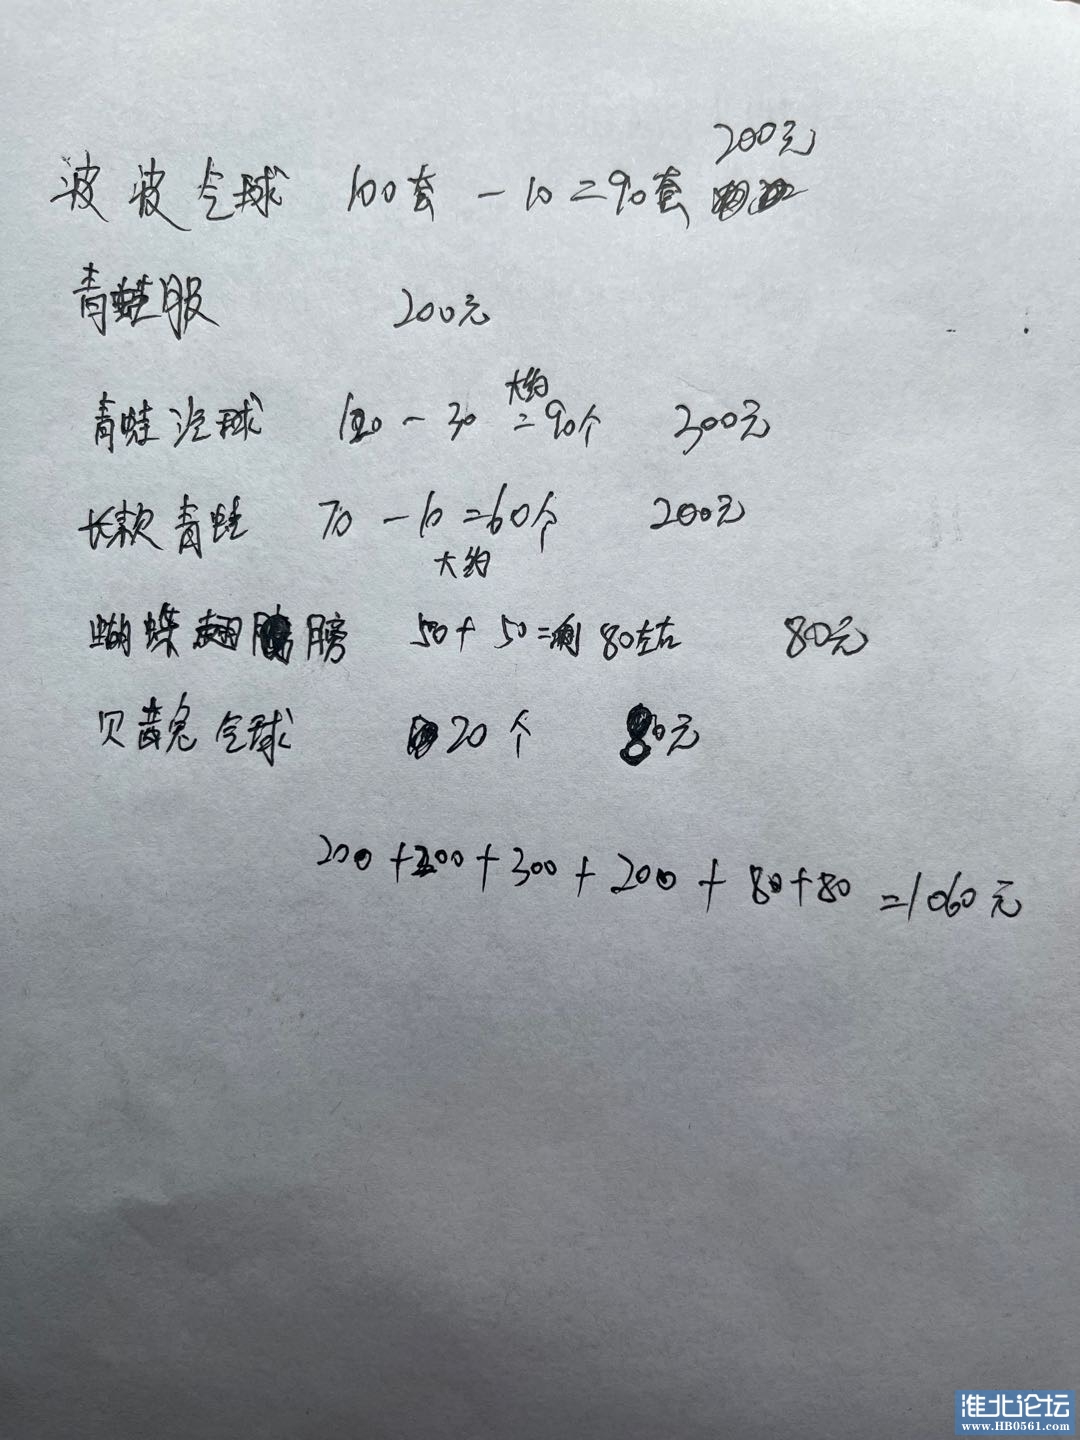 200元
波波气球 100套 - 10 = 90套
青蛙服 200元
青蛙气球 120 - 30 大约 = 90个 300元
长款青蛙 70 - 10 = 60个 200元
大约
蝴蝶翅膀 50 + 50 = 剩80左右 80元
贝贡兔气球 20个 80元
200 + 200 + 300 + 200 + 80 + 80 = 1060元
淮北论坛
www.HB0561.com